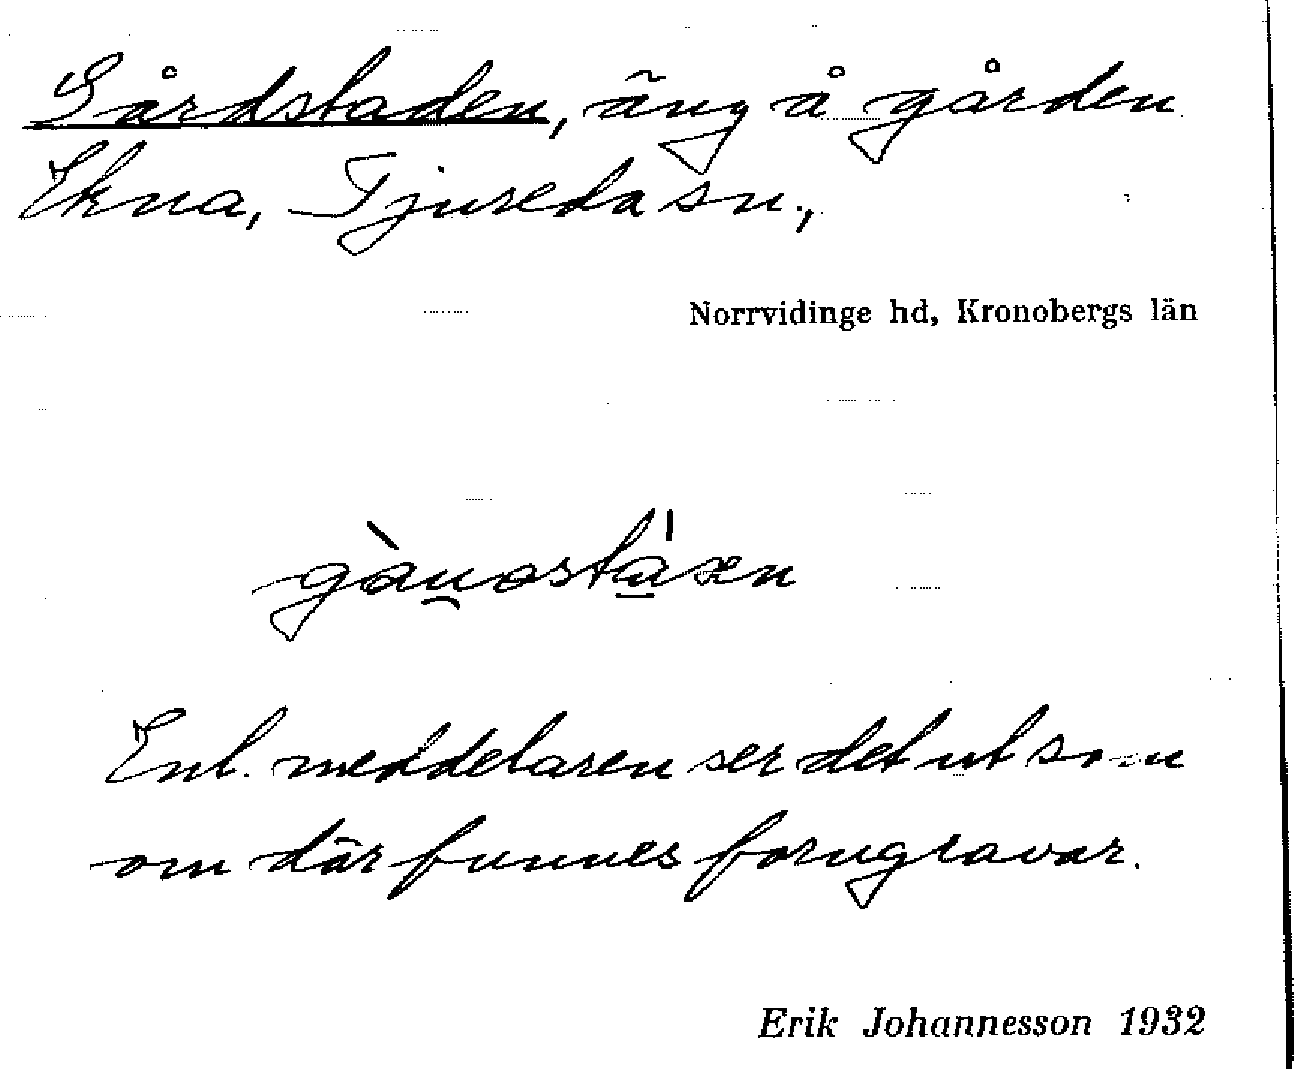 Gårdstaden, äng å gården
Ekna, Tjureda sn.,
Norrvidinge hd, Kronobergs län
Enl. meddelaren ser det ut som
om där funnes forngravar.
Erik Johannesson 1932